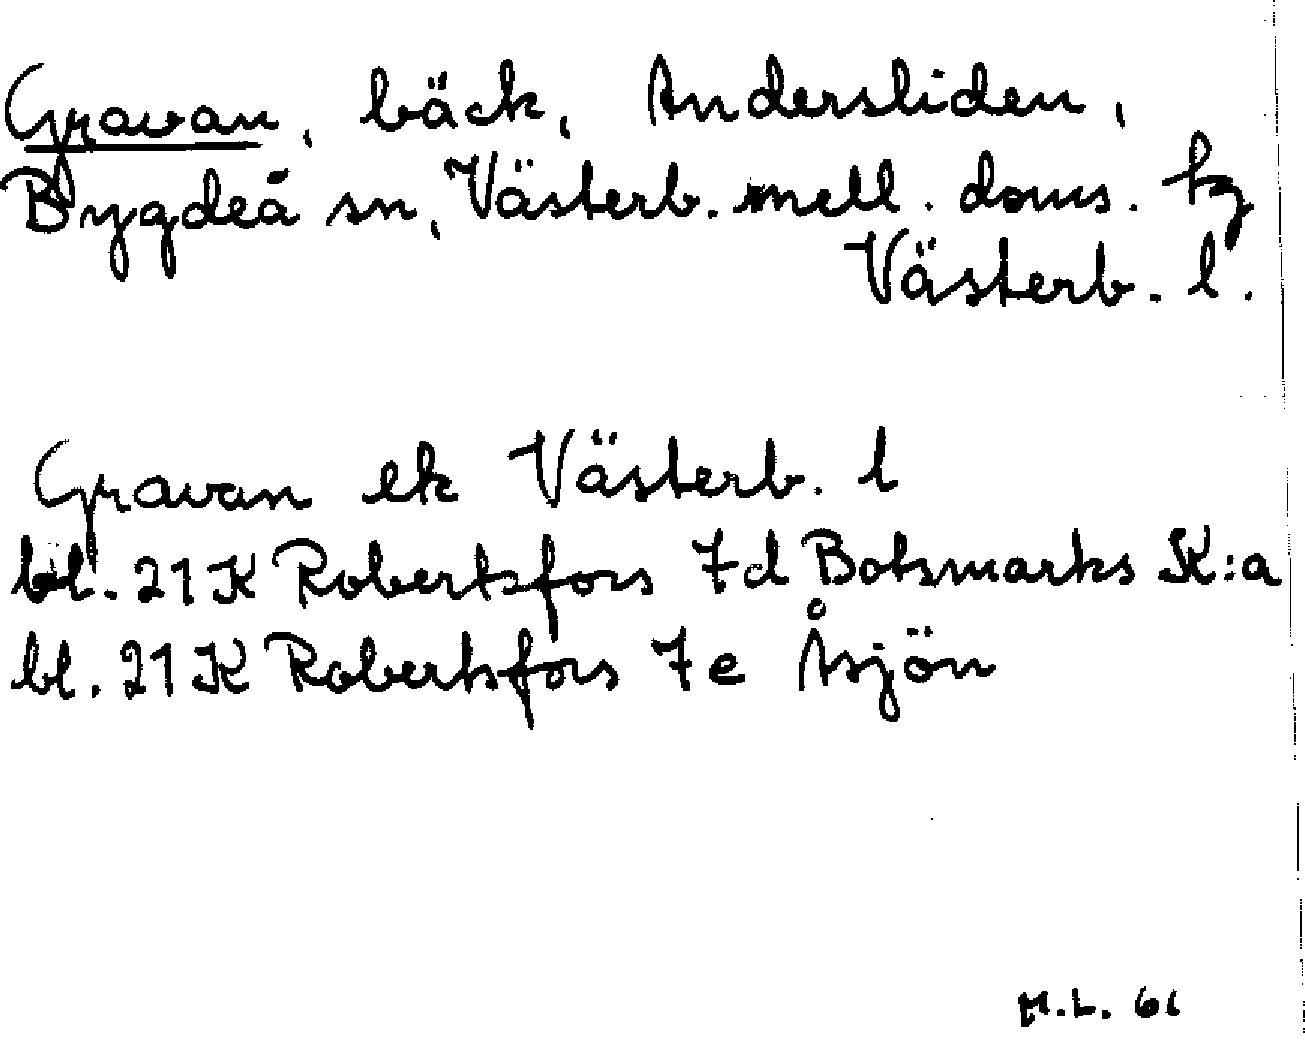 Gravan, bäck, Andersliden,
Bygdeå sn, Västerb. mell. doms. tg
Västerb. l.
Gravan ek Västerb. l
bl. 21 K Robertsfors 7d Botsmarks K:a
bl. 21 K Robertsfors 7e Åsjön
M.L. 61